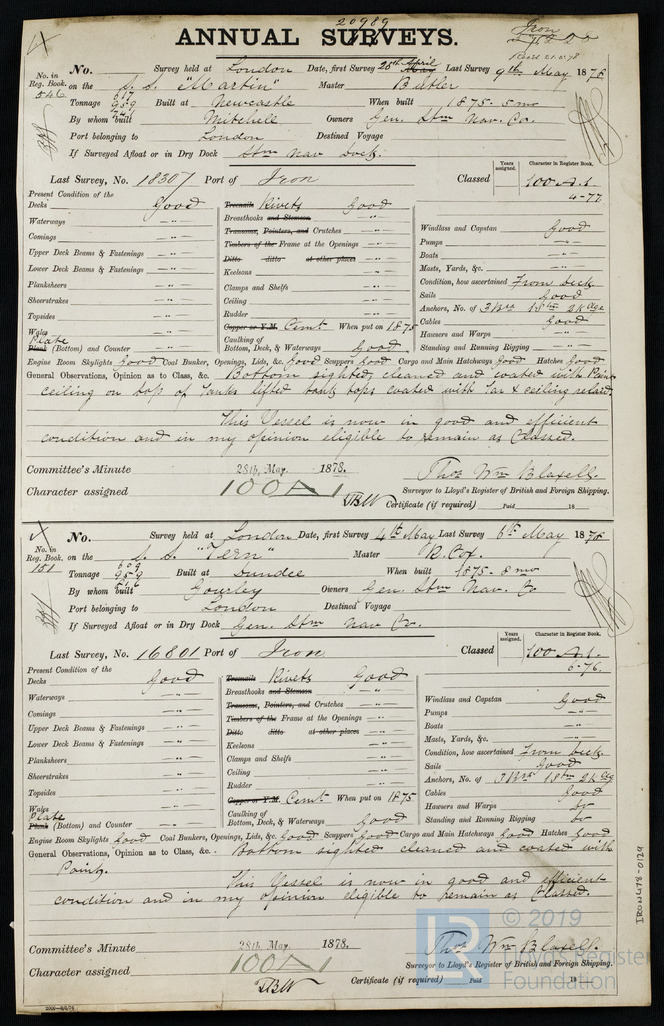 20989
ANNUAL SURVEYS.
Iron
No. in Reg. Book. 546
No. Survey held at London Date, first Survey 25th April Last Survey 9th May 1878
on the S.S. "Martin" Master Butler
Tonnage 959 Built at Newcastle When built 1875 - 5 mo
By whom built Mitchell Owners Gen. Stm Nav. Co.
Port belonging to London Destined Voyage
If Surveyed Afloat or in Dry Dock Stm Nav Dock.
Last Survey, No. 18307 Port of Iron Classed
Years assigned.
Character in Register Book.
100 A.1.
4-77
Present Condition of the
Decks Good
Waterways - " -
Comings - " -
Upper Deck Beams & Fastenings - " -
Lower Deck Beams & Fastenings - " -
Planksheers - " -
Sheerstrakes - " -
Topsides - " -
Wales - " -
Plate
Plank (Bottom) and Counter - " -
Treenails Rivets Good
Breasthooks and Stemson - " -
Transoms, Pointers, and Crutches - " -
Timbers of the Frame at the Openings - " -
Ditto ditto at other places - " -
Keelsons - " -
Clamps and Shelfs - " -
Ceiling - " -
Rudder - " -
Copper or Y.M. Cemt. When put on 1875
Caulking of
Bottom, Deck, & Waterways Good
Windlass and Capstan Good
Pumps - " -
Boats - " -
Masts, Yards, &c. - " -
Condition, how ascertained From deck
Sails Good
Anchors, No. of 3 Bra 1 Stm 2 Kdge
Cables Good
Hawsers and Warps - " -
Standing and Running Rigging - " -
Engine Room Skylights Good Coal Bunker, Openings, Lids, &c. Good Scuppers Good Cargo and Main Hatchways Good Hatches Good
General Observations, Opinion as to Class, &c. Bottom sighted cleaned and coated with Paint
ceiling on top of tanks lifted tank tops coated with Tar & ceiling relaid.
This Vessel is now in good and efficient
condition and in my opinion eligible to remain as Classed.
Committee's Minute 28th May 1878.
Character assigned 100A1
Thos Wm Blaxell.
Surveyor to Lloyd's Register of British and Foreign Shipping.
Certificate (if required) Paid 18
No. in Reg. Book. 151
No. Survey held at London Date, first Survey 4th May Last Survey 6th May 1878
on the S.S. "Tern" Master R. Cox.
Tonnage 959 Built at Dundee When built 1875 - 8 mo
By whom built Gourley Owners Gen. Stm Nav. Co
Port belonging to London Destined Voyage
If Surveyed Afloat or in Dry Dock Gen. Stm Nav Co.
Last Survey, No. 16801 Port of Iron Classed
Years assigned.
Character in Register Book.
100 A.1.
6-76.
Present Condition of the
Decks Good
Waterways - " -
Comings - " -
Upper Deck Beams & Fastenings - " -
Lower Deck Beams & Fastenings - " -
Planksheers - " -
Sheerstrakes - " -
Topsides - " -
Wales - " -
Plate
Plank (Bottom) and Counter - " -
Treenails Rivets Good
Breasthooks and Stemson - " -
Transoms, Pointers, and Crutches - " -
Timbers of the Frame at the Openings - " -
Ditto ditto at other places - " -
Keelsons - " -
Clamps and Shelfs - " -
Ceiling - " -
Rudder - " -
Copper or Y.M. Cemt. When put on 1875
Caulking of
Bottom, Deck, & Waterways Good
Windlass and Capstan Good
Pumps - " -
Boats - " -
Masts, Yards, &c. - " -
Condition, how ascertained From deck
Sails Good
Anchors, No. of 3 Bra 1 Stm 2 Kdg
Cables Good
Hawsers and Warps do
Standing and Running Rigging do
Engine Room Skylights Good Coal Bunkers, Openings, Lids, &c. Good Scuppers Good Cargo and Main Hatchways Good Hatches Good
General Observations, Opinion as to Class, &c. Bottom sighted cleaned and coated with
Paint.
This Vessel is now in good and efficient
condition and in my opinion eligible to remain as Classed.
Committee's Minute 28th May 1878.
Character assigned 100A1
Thos Wm Blaxell.
Surveyor to Lloyd's Register of British and Foreign Shipping.
Certificate (if required) Paid 18
IRON478-0129
LR
© 2019
Lloyd's Register
Foundation